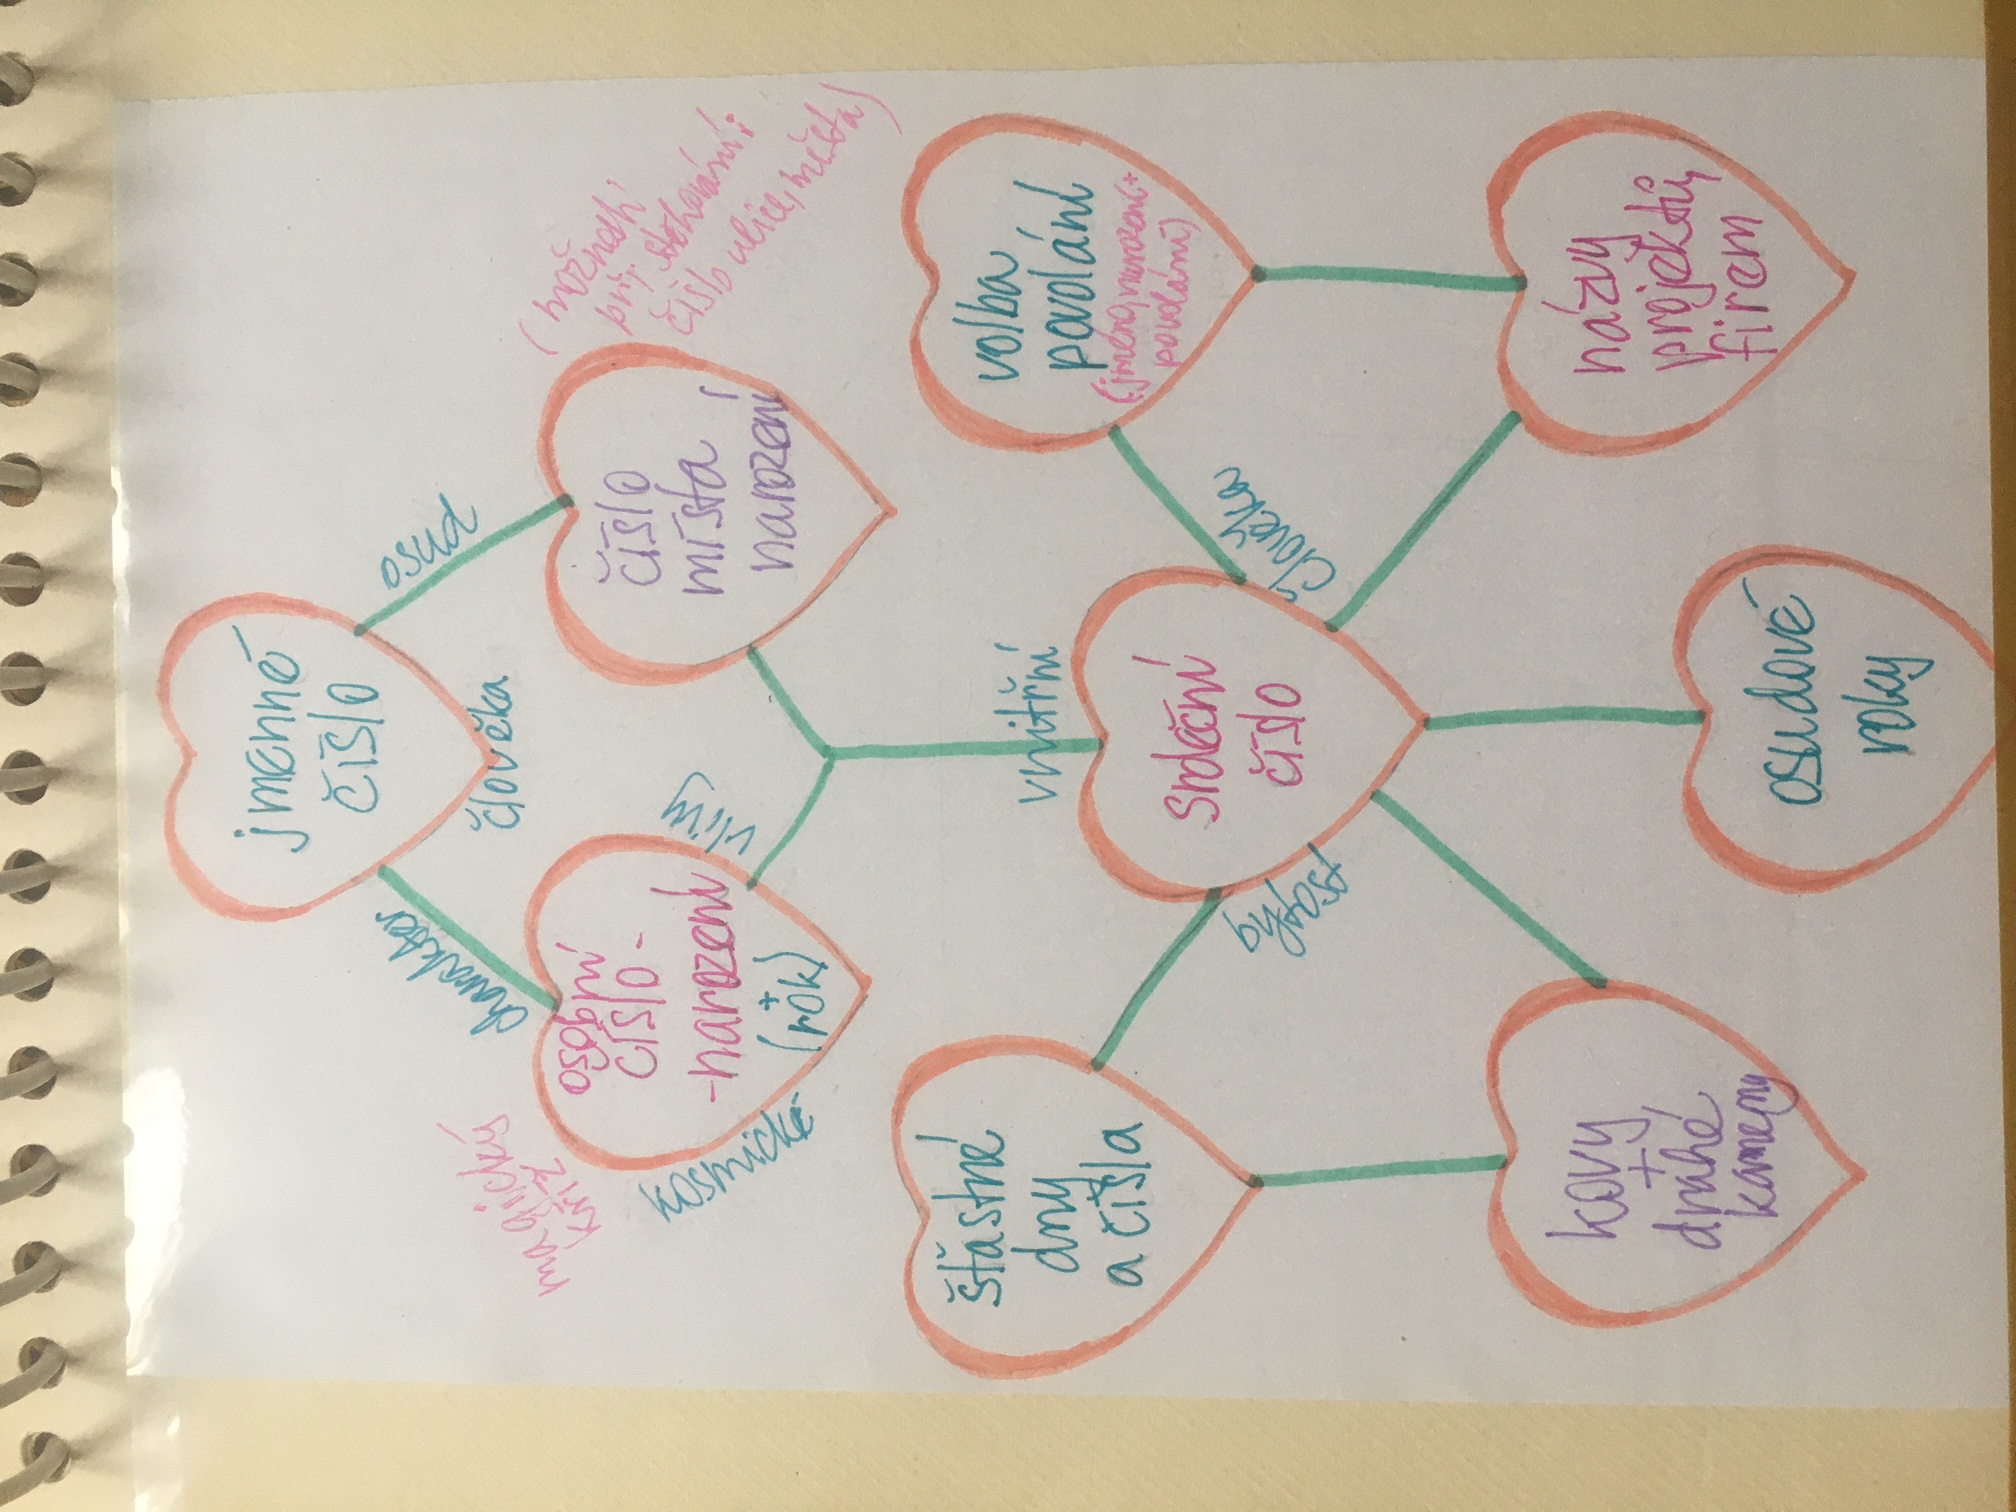 jmenné
číslo
charakter
člověka
osud
magický
kříž
osobní
číslo -
-narození
(rok)
kosmické
vlivy
číslo
místa
narození
(možnosti
při stěhování:
číslo ulice, města)
šťastné
dny
a čísla
vnitřní
srdeční
číslo
bytost
člověka
volba
povolání
(jméno, narození +
povolání)
kovy
+
drahé
kameny
osudové
roky
názvy
projektů,
firem